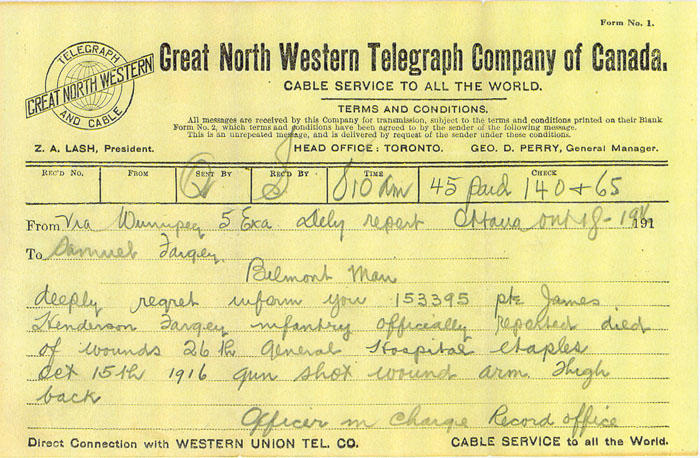 Form No. 1.
TELEGRAPH
GREAT NORTH WESTERN
AND CABLE
Great North Western Telegraph Company of Canada.
CABLE SERVICE TO ALL THE WORLD.
TERMS AND CONDITIONS.
All messages are received by this Company for transmission, subject to the terms and conditions printed on their Blank
Form No. 2, which terms and conditions have been agreed to by the sender of the following message.
This is an unrepeated message, and is delivered by request of the sender under these conditions.
Z. A. LASH, President. HEAD OFFICE: TORONTO. GEO. D. PERRY, General Manager.
REC'D NO. FROM SENT BY REC'D BY TIME CHECK
810 Am 45 paid 140 + 65
From Via Winnipeg 5 Exa Dely report Ottawa ont 18- 191
To Samuel Fargey
Belmont Man
deeply regret inform you 153395 pte James
Henderson Fargey infantry officially reported died
of wounds 26th General Hospital etaples
Oct 15th 1916 gun shot wound arm Thigh
back
Officer in Charge Record office
Direct Connection with WESTERN UNION TEL. CO. CABLE SERVICE to all the World.